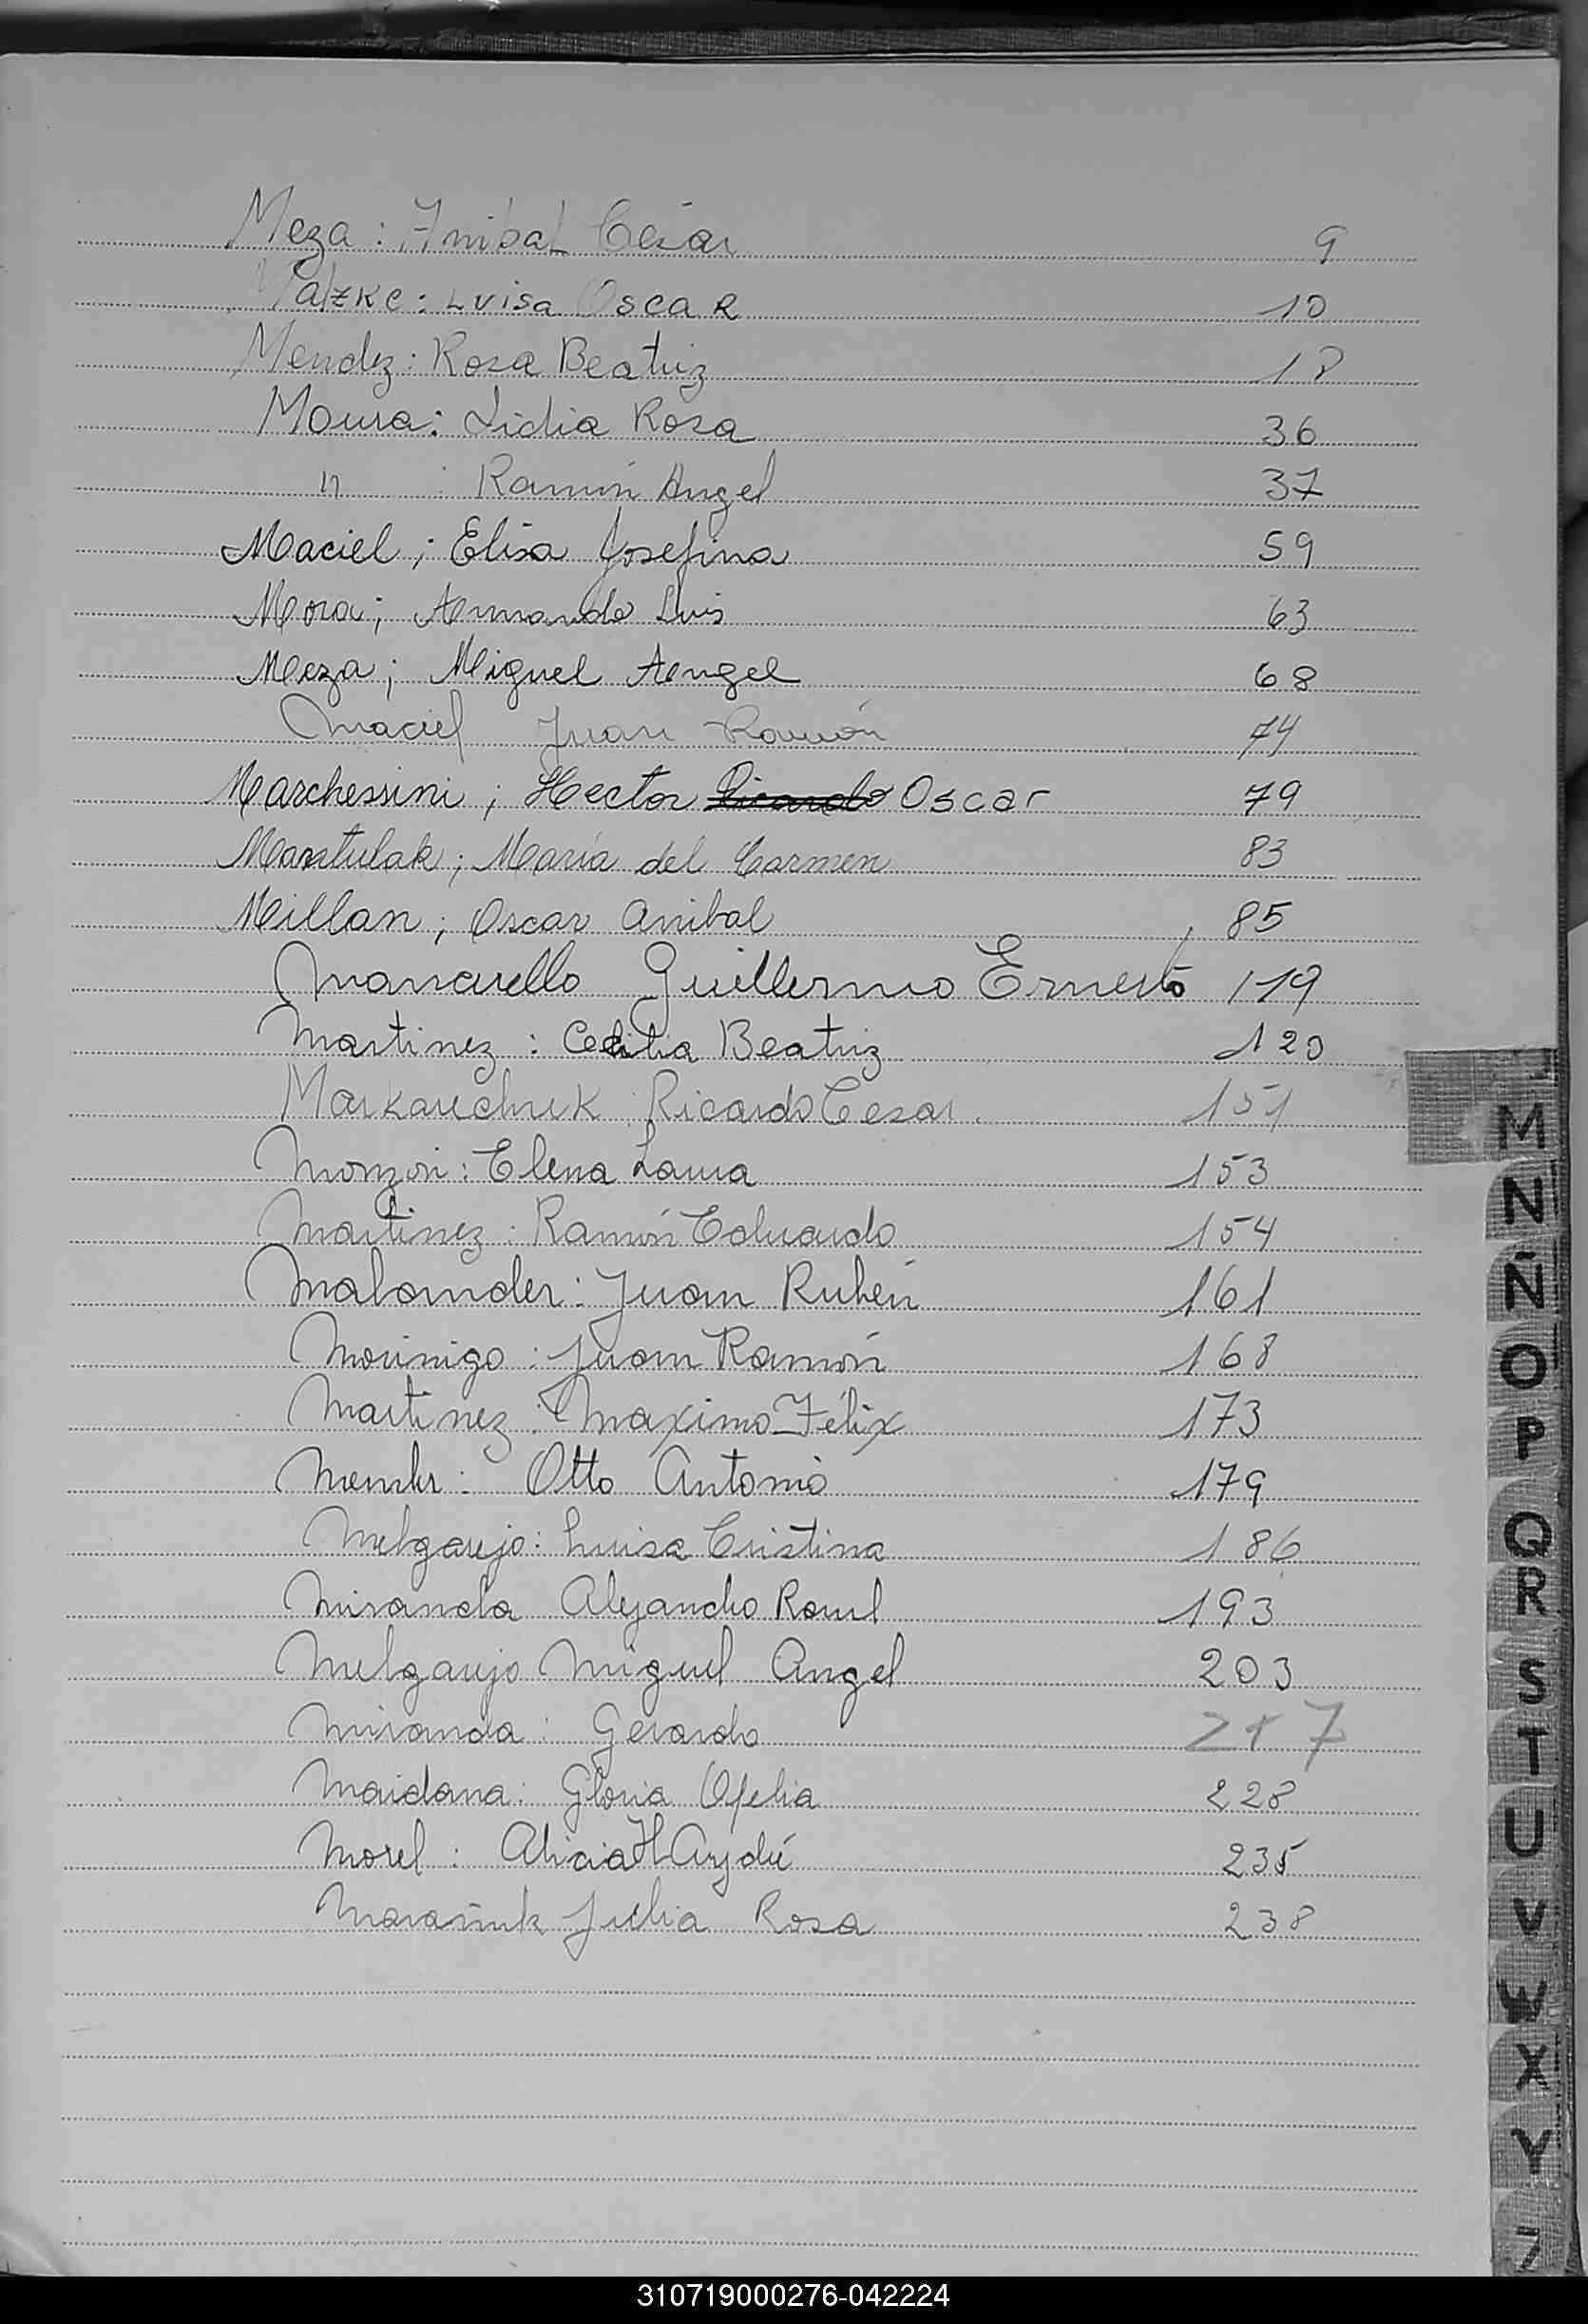 Meza: Anibal César 9
Matzke: Luisa Oscar 10
Mendez: Rosa Beatriz 18
Moura: Lidia Rosa 36
" : Ramón Angel 37
Maciel; Elisa Josefina 59
Mora; Armando Luis 63
Meza; Miguel Angel 68
Maciel Juan Ramón 74
Marchessini; Hector Ricardo Oscar 79
Martulak; María del Carmen 83
Millan; Oscar Anibal 85
Mancarello Guillermo Ernesto 119
Martinez: Cecilia Beatriz 120
Markarichuk Ricardo Cesar. 151
Monzon: Elena Laura 153
Martinez: Ramón Eduardo 154
Malander: Juan Rubén 161
Morinigo: Juan Ramón 168
Martinez: Maximo Félix 173
Otto Antonio 179
Melgarejo: Luisa Cristina 186
Miranda Alejandro Raul 193
Melgarejo Miguel Angel 203
Miranda: Gerardo 217
Maidana: Gloria Ofelia 228
Morel: Alicia H 235
Julia Rosa 238
M
N
Ñ
O
P
Q
R
S
T
U
V
W
X
Y
Z
310719000276-042224